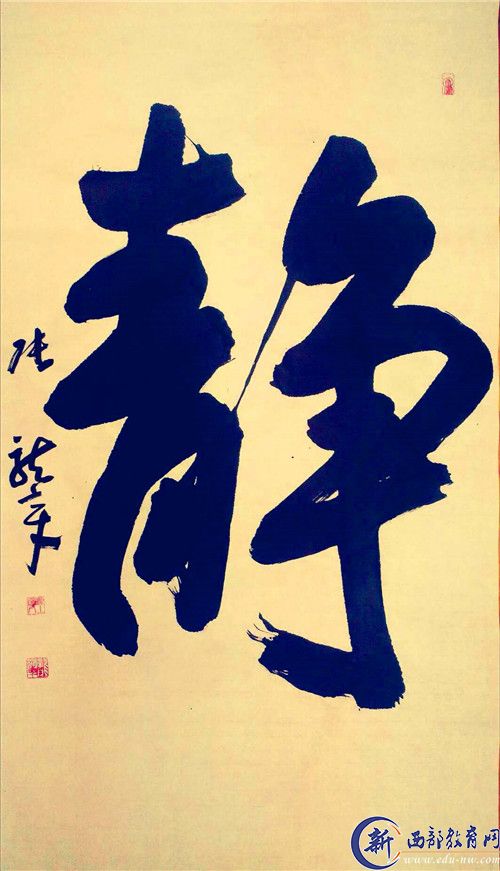 静
张
新 西部教育网
www.edu-nw.com